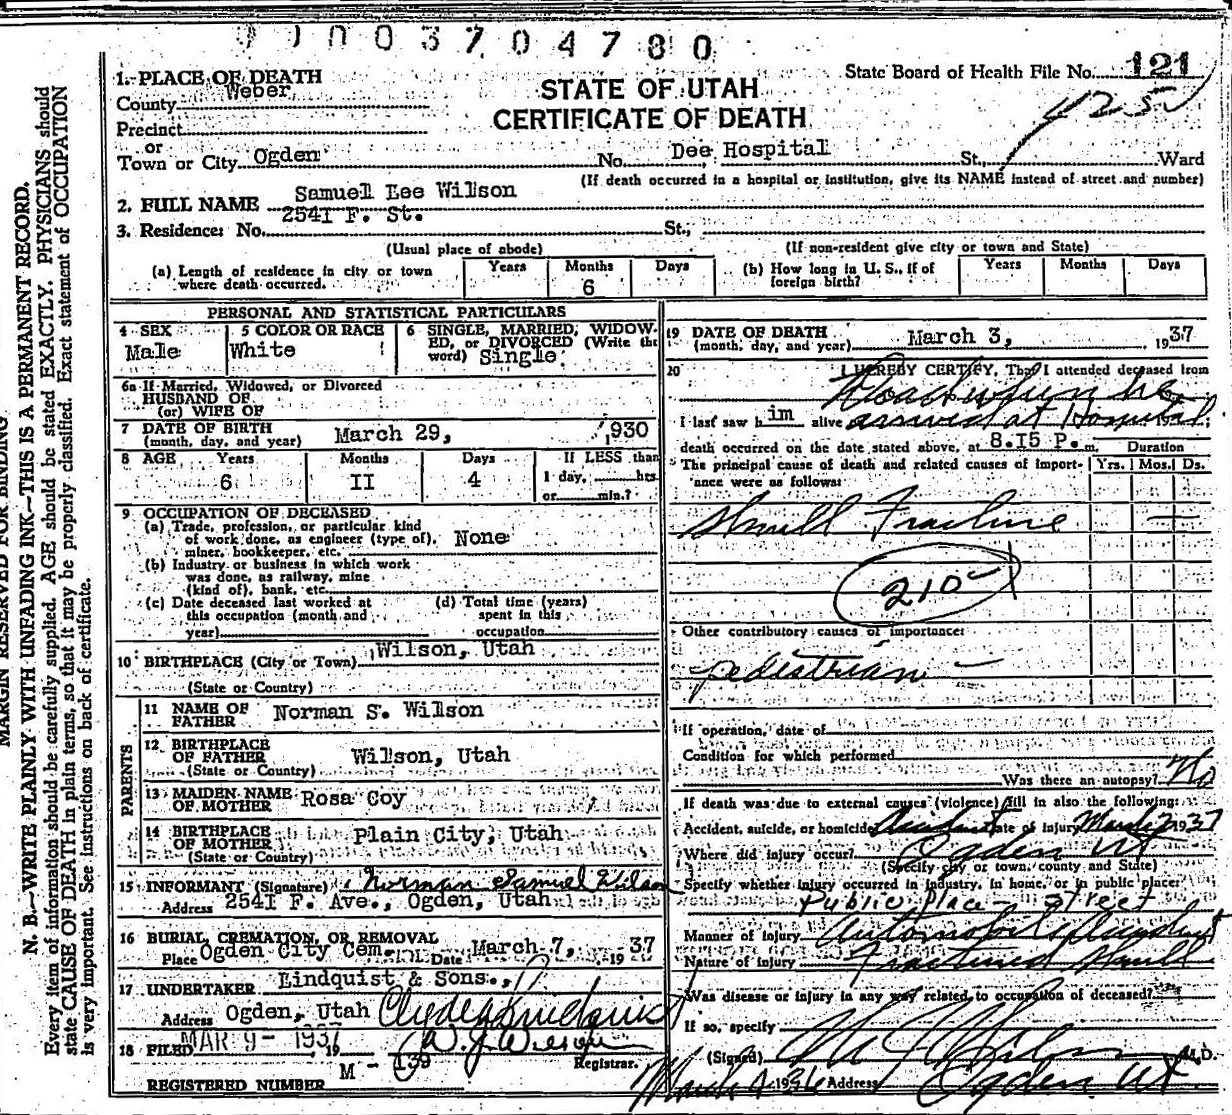 003704780
1. PLACE OF DEATH
STATE OF UTAH
CERTIFICATE OF DEATH
State Board of Health File No. 121
County Weber
Precinct
or
Town or City Ogden No. Dee Hospital St., Ward
(If death occurred in a hospital or institution, give its NAME instead of street and number)
2. FULL NAME Samuel Lee Wilson
3. Residence: No. 254I F. St. St.,
(Usual place of abode) (If non-resident give city or town and State)
(a) Length of residence in city or town where death occurred. Years Months 6 Days
(b) How long in U. S., if of foreign birth? Years Months Days
PERSONAL AND STATISTICAL PARTICULARS
4 SEX Male
5 COLOR OR RACE White
6 SINGLE, MARRIED, WIDOWED, or DIVORCED (Write the word) Single
6a If Married, Widowed, or Divorced
HUSBAND OF
(or) WIFE OF
7 DATE OF BIRTH (month, day, and year) March 29, 1930
8 AGE Years 6 Months II Days 4 If LESS than 1 day, hrs or min.?
9 OCCUPATION OF DECEASED
(a) Trade, profession, or particular kind
of work done, as engineer (type of), None
miner, bookkeeper, etc.
(b) Industry or business in which work
was done, as railway, mine
(kind of), bank, etc.
(c) Date deceased last worked at this occupation (month and year)
(d) Total time (years) spent in this occupation
10 BIRTHPLACE (City or Town) Wilson, Utah
(State or Country)
PARENTS
11 NAME OF FATHER Norman S. Wilson
12 BIRTHPLACE OF FATHER Wilson, Utah
(State or Country)
13 MAIDEN NAME OF MOTHER Rosa Coy
14 BIRTHPLACE OF MOTHER Plain City, Utah
(State or Country)
15 INFORMANT (Signature) Norman Samuel Wilson
Address 254I F. Ave., Ogden, Utah
16 BURIAL, CREMATION, OR REMOVAL
Place Ogden City Cem. Date March 7, 1937
17 UNDERTAKER Lindquist & Sons.,
Address Ogden, Utah
18 FILED MAR 9- 1937 19
Registrar.
REGISTERED NUMBER M - 139
19 DATE OF DEATH (month, day, and year) March 3, 1937
20 I HEREBY CERTIFY, That I attended deceased from
Dead when he
I last saw him alive arrived at Hospital
death occurred on the date stated above, at 8.I5 P. m. Duration
The principal cause of death and related causes of importance were as follows: Yrs. Mos. Ds.
Skull Fracture
210
Other contributory causes of importance:
pedestrian
If operation, date of
Condition for which performed
Was there an autopsy? No
If death was due to external causes (violence) fill in also the following:
Accident, suicide, or homicide Accident Date of injury March 1937
Where did injury occur? Ogden Ut
(Specify city or town, county and State)
Specify whether injury occurred in industry, in home, or in public place:
Public Place - Street
Manner of injury Automobile Accident
Nature of injury Fractured Skull
Was disease or injury in any way related to occupation of deceased?
If so, specify
(Signed) M.D.
Address Ogden Ut
MARGIN RESERVED FOR BINDING
N. B.—WRITE PLAINLY WITH UNFADING INK—THIS IS A PERMANENT RECORD.
Every item of information should be carefully supplied. AGE should be stated EXACTLY. PHYSICIANS should
state CAUSE OF DEATH in plain terms, so that it may be properly classified. Exact statement of OCCUPATION
is very important. See instructions on back of certificate.